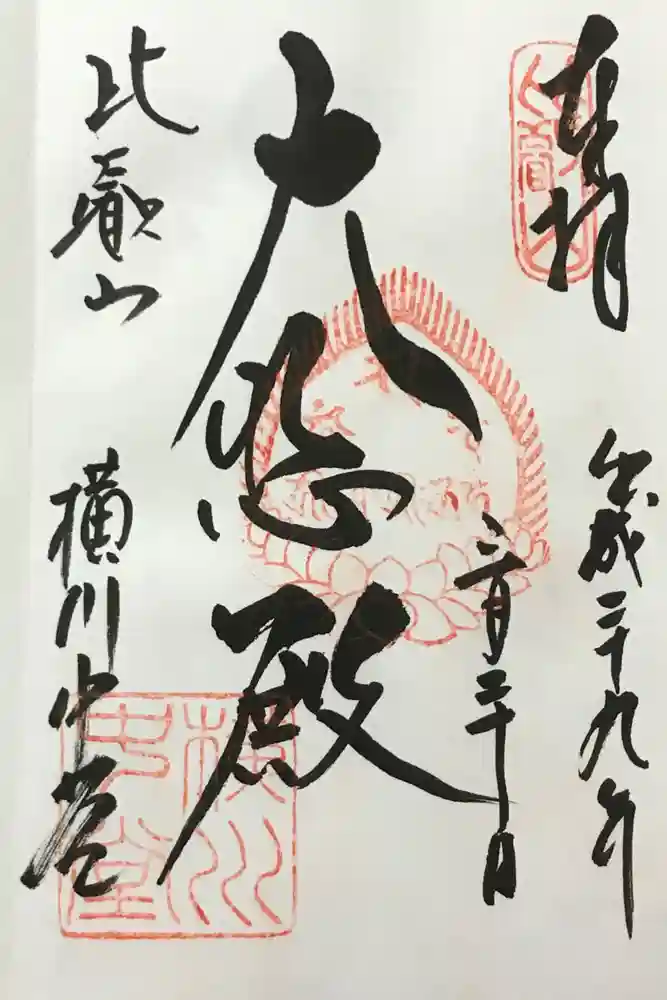 奉拝
平成二十九年
三月三十日
大悲殿
比叡山
横川中堂
横川
中堂